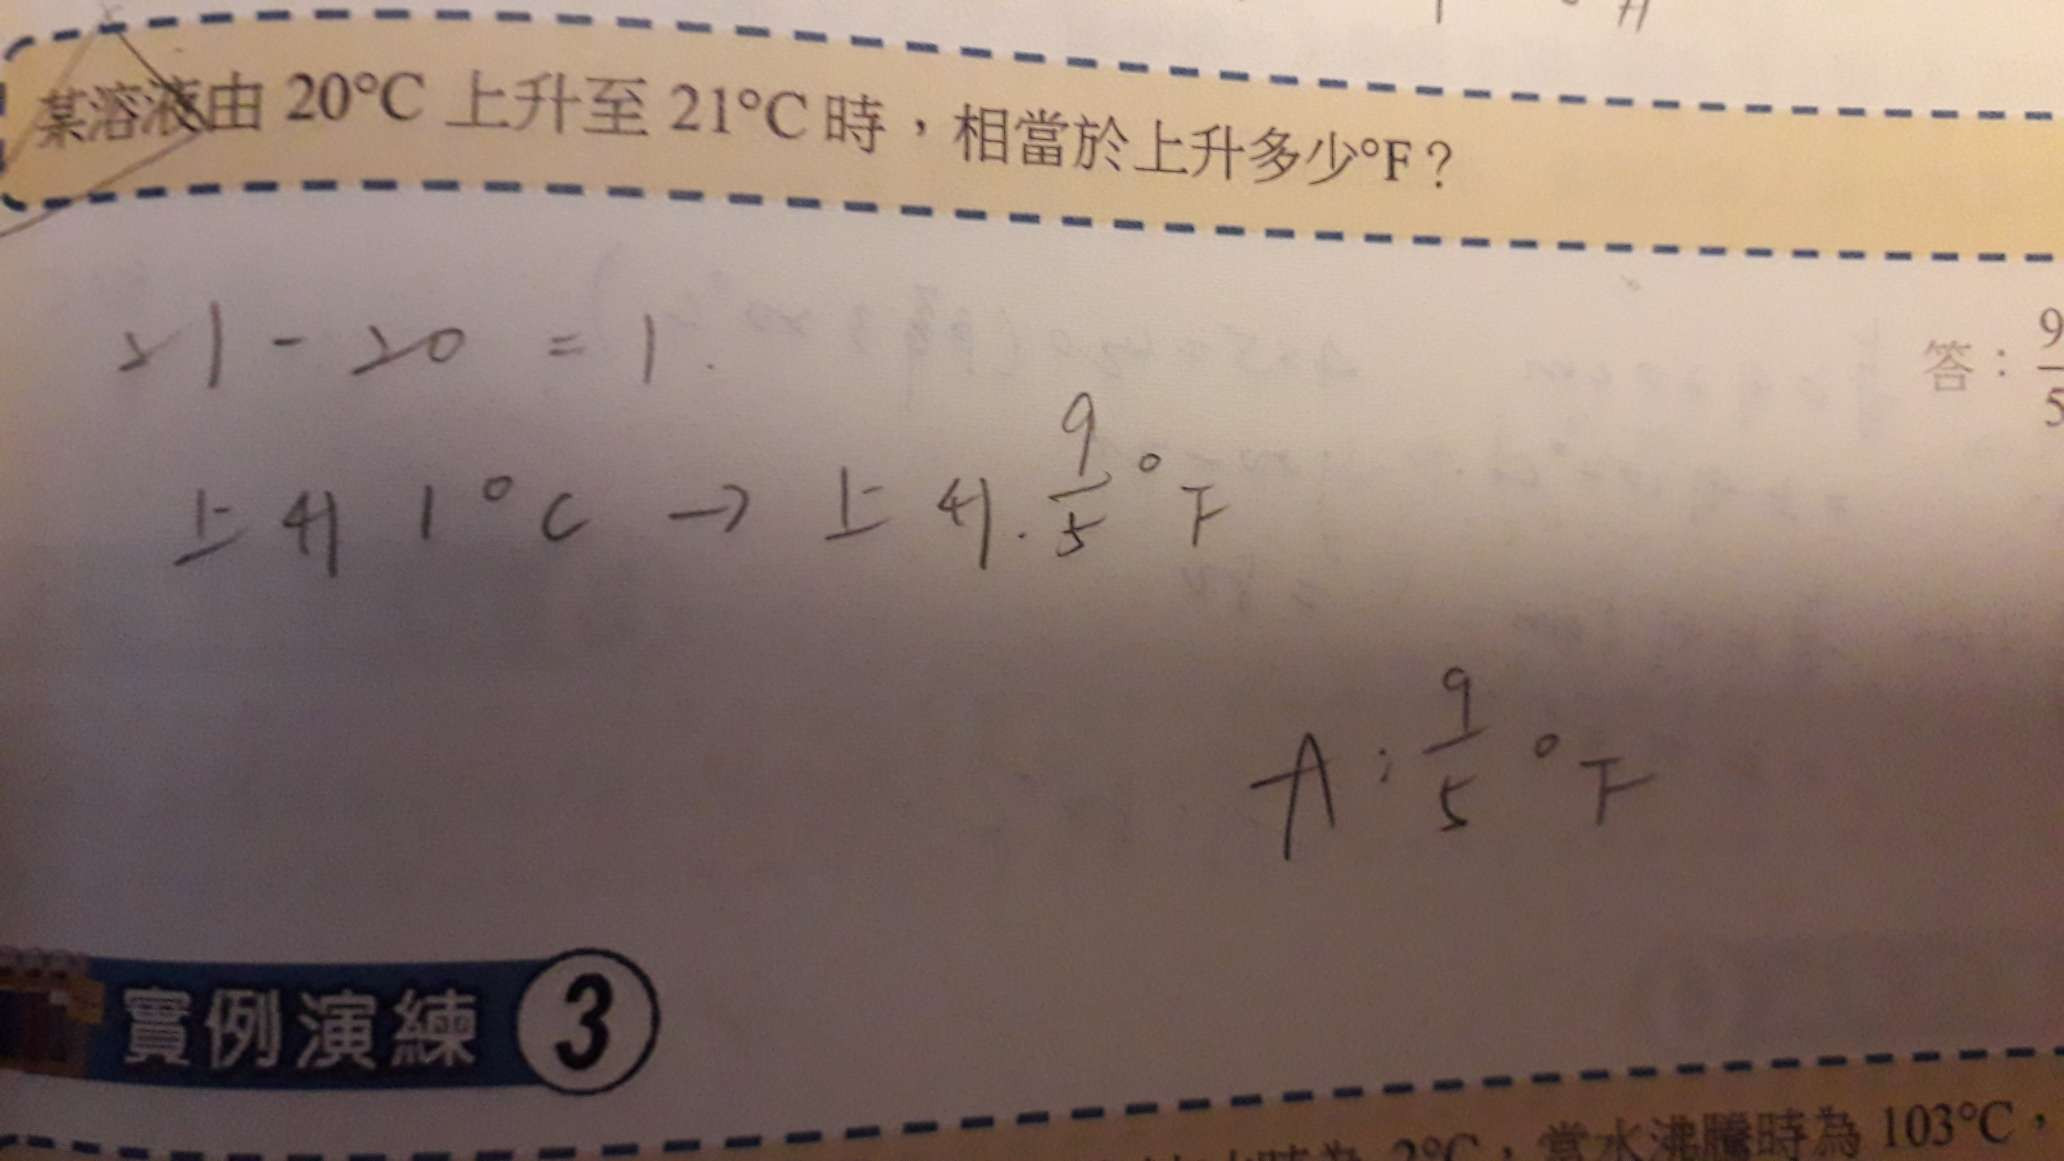 某溶液由 20°C 上升至 21°C 時，相當於上升多少°F？
21 - 20 = 1.
答：9/5
上升 1°C → 上升. 9/5 °F
A: 9/5 °F
實例演練 3
2°C，當水沸騰時為 103°C，